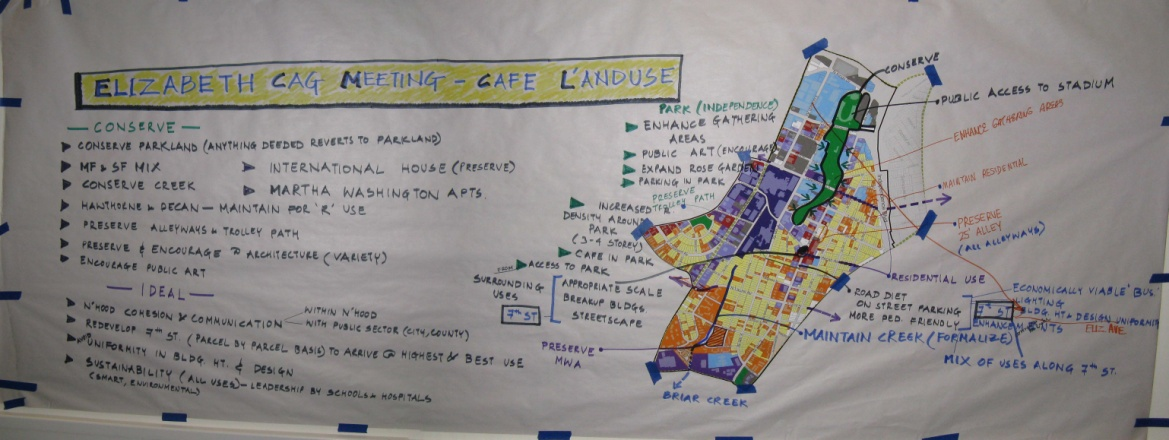 ELIZABETH CAG MEETING - CAFE L'ANDUSE
— CONSERVE —
CONSERVE PARKLAND (ANYTHING DEEDED REVERTS TO PARKLAND)
MF & SF MIX
INTERNATIONAL HOUSE (PRESERVE)
CONSERVE CREEK
MARTHA WASHINGTON APTS.
HAWTHORNE & DECAN — MAINTAIN FOR 'R' USE
PRESERVE ALLEYWAYS & TROLLEY PATH
PRESERVE & ENCOURAGE ARCHITECTURE (VARIETY)
ENCOURAGE PUBLIC ART
— IDEAL —
N'HOOD COHESION & COMMUNICATION
WITHIN N'HOOD
WITH PUBLIC SECTOR (CITY, COUNTY)
REDEVELOP 7TH ST (PARCEL BY PARCEL BASIS) TO ARRIVE @ HIGHEST & BEST USE
UNIFORMITY IN BLDG HT. & DESIGN
SUSTAINABILITY (ALL USES) — LEADERSHIP BY SCHOOLS & HOSPITALS
(SMART, ENVIRONMENTAL)
PARK (INDEPENDENCE)
ENHANCE GATHERING
AREAS
PUBLIC ART (ENCOURAGE
EXPAND ROSE GARDEN
PARKING IN PARK
PRESERVE
TROLLEY PATH
INCREASED 'R'
DENSITY AROUND
PARK
(3-4 STOREY)
CAFE IN PARK
ACCESS TO PARK
SURROUNDING
USES
7TH ST
APPROPRIATE SCALE
BREAKUP BLDGS
STREETSCAPE
PRESERVE
MWA
BRIAR CREEK
CONSERVE
PUBLIC ACCESS TO STADIUM
ENHANCE GATHERING AREAS
MAINTAIN RESIDENTIAL
PRESERVE
25' ALLEY
(ALL ALLEYWAYS)
RESIDENTIAL USE
ROAD DIET
ON STREET PARKING
MORE PED. FRIENDLY
7TH ST
ENHANCEMENTS
ECONOMICALLY VIABLE BUS.
LIGHTING
BLDG HT & DESIGN UNIFORMITY
ELIZ AVE.
MAINTAIN CREEK (FORMALIZE)
MIX OF USES ALONG 7TH ST.